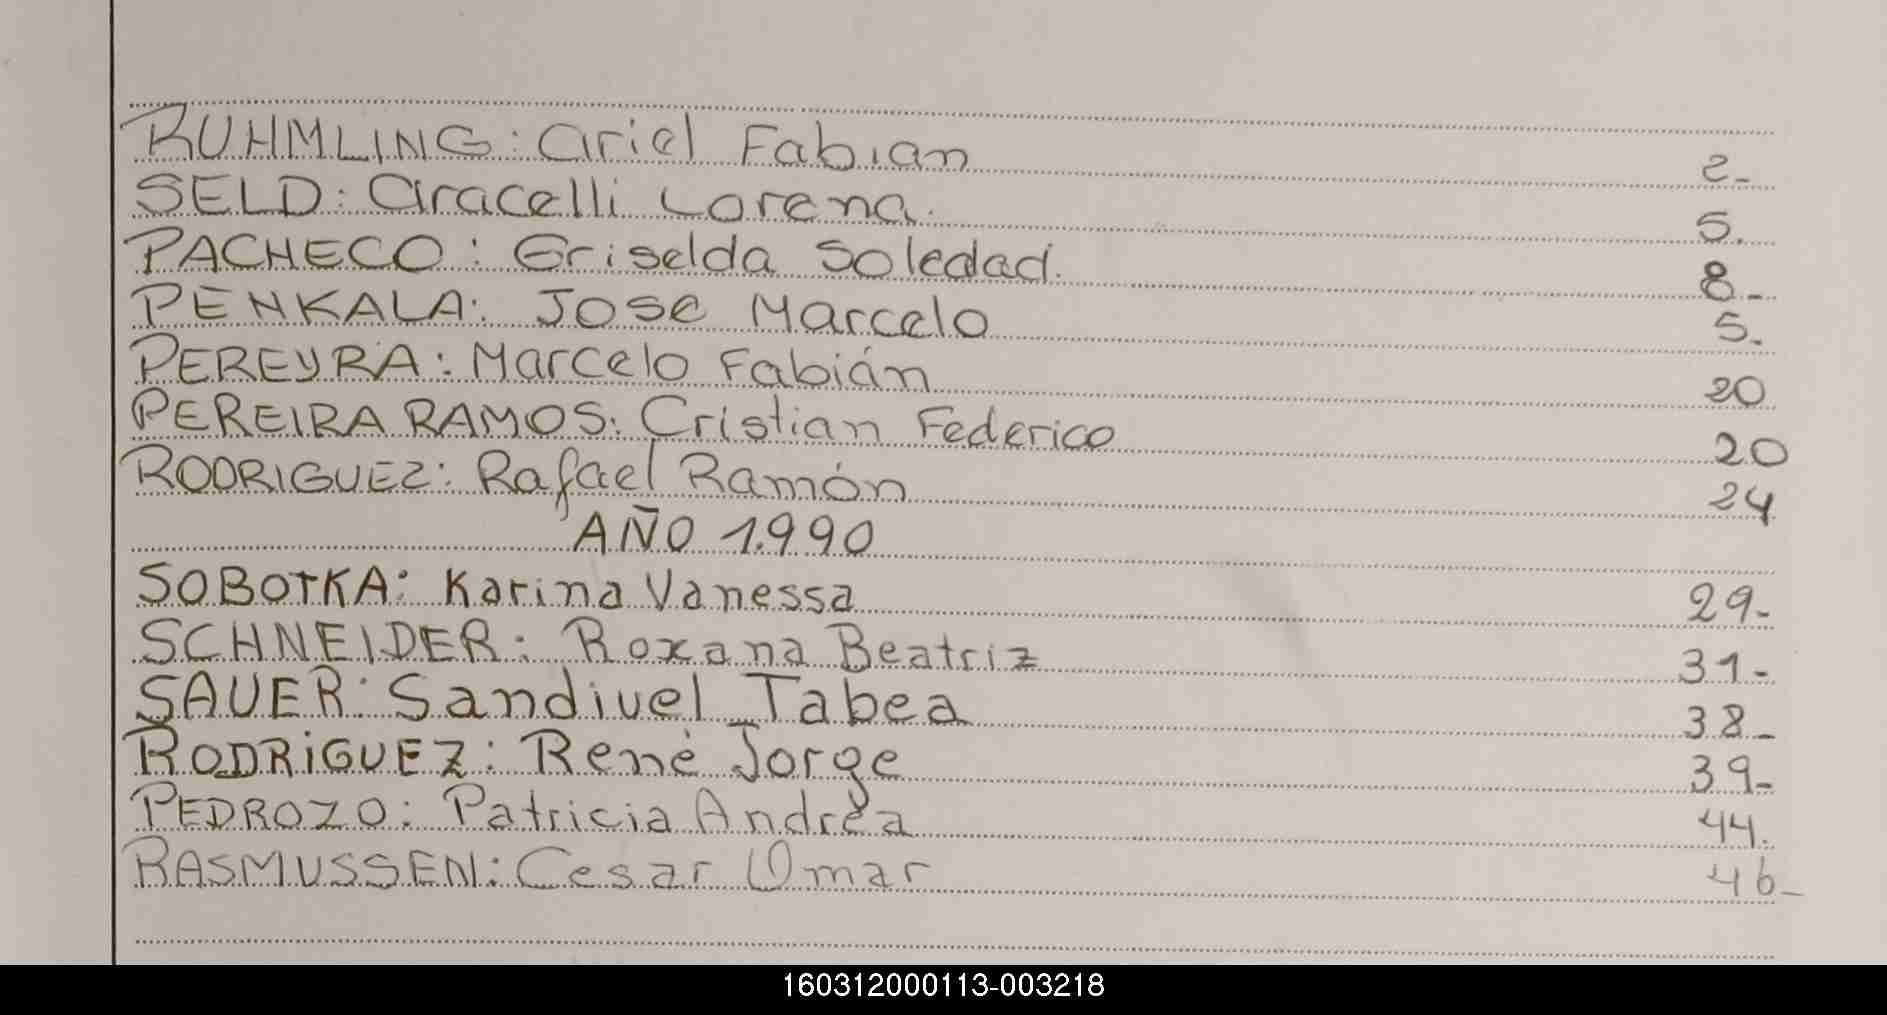 RUHMLING: Ariel Fabian 2-
SELD: Aracelli Lorena. 5.
PACHECO: Griselda Soledad. 8-
PENKALA: Jose Marcelo 5.
PEREYRA: Marcelo Fabián 20
PEREIRA RAMOS: Cristian Federico 20
RODRIGUEZ: Rafael Ramón 24
AÑO 1.990
SOBOTKA: Karina Vanessa 29-
SCHNEIDER: Roxana Beatriz 31-
SAUER: Sandivel Tabea 38-
RODRIGUEZ: René Jorge 39-
PEDROZO: Patricia Andréa 44.
RASMUSSEN: Cesar Omar 46-
160312000113-003218